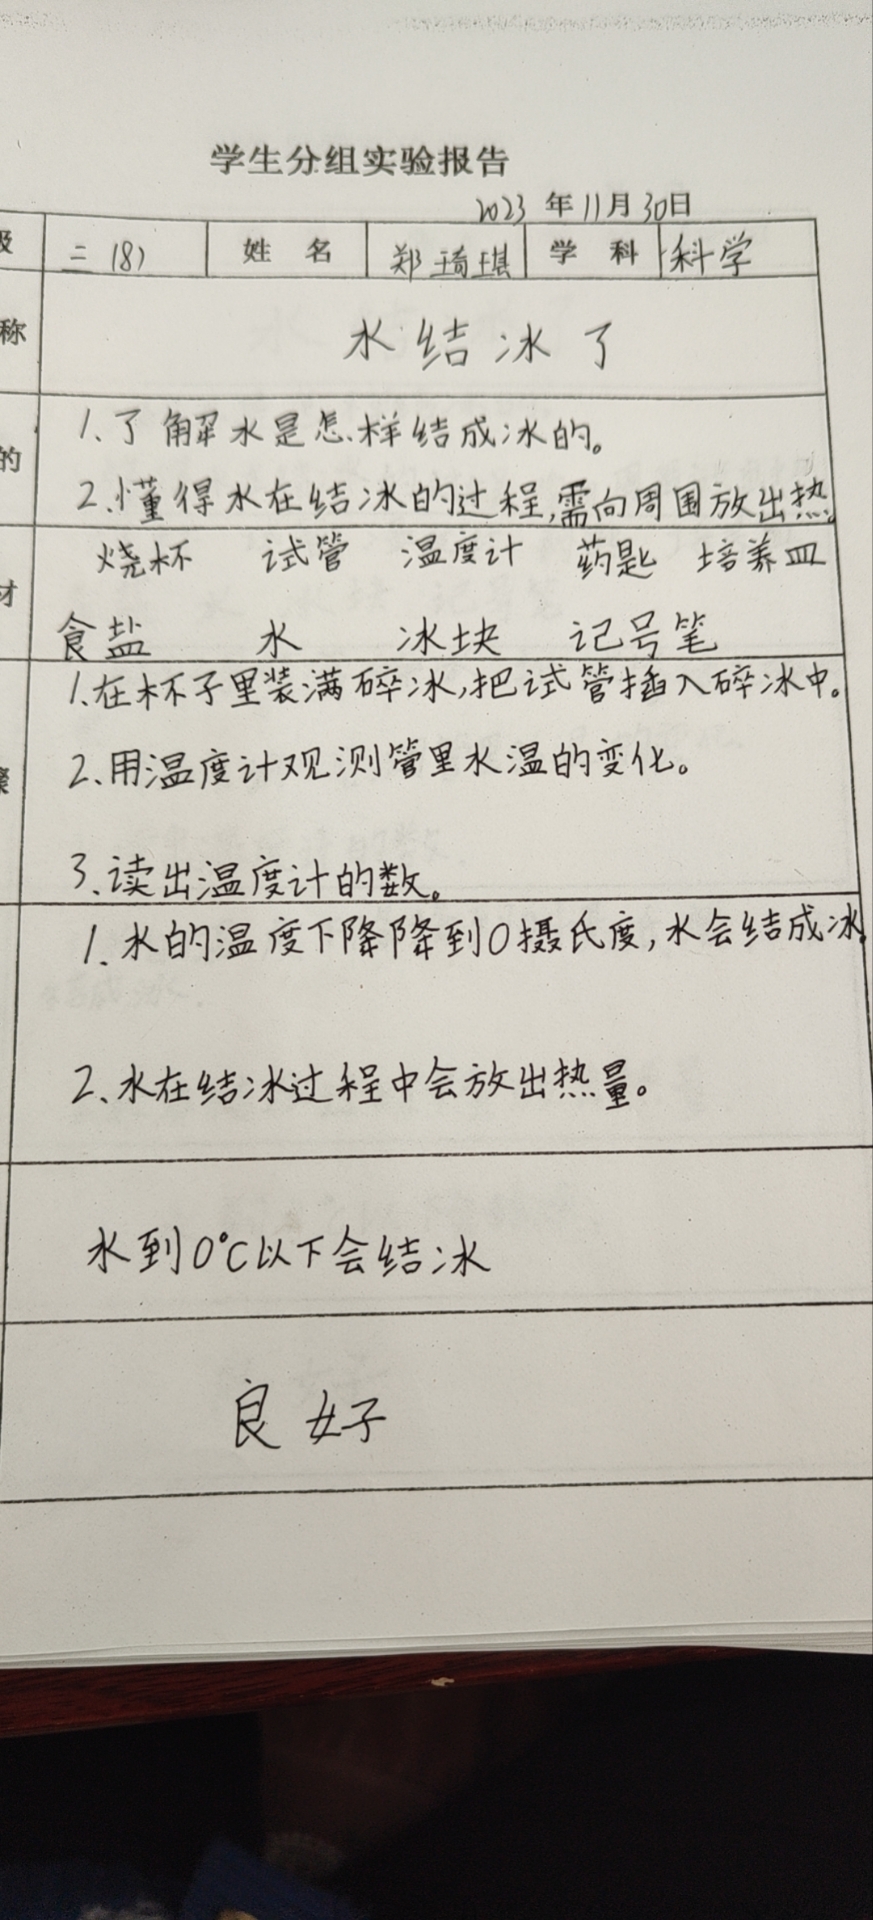 学生分组实验报告
2023 年 11 月 30 日
级 三(8) 姓 名 郑琦琪 学 科 科学
称 水结冰了
1、了解水是怎样结成冰的。
的
2、懂得水在结冰的过程,需向周围放出热。
烧杯 试管 温度计 药匙 培养皿
材
食盐 水 冰块 记号笔
1、在杯子里装满碎冰,把试管插入碎冰中。
骤 2、用温度计观测管里水温的变化。
3、读出温度计的数。
1、水的温度下降降到0摄氏度,水会结成冰。
2、水在结冰过程中会放出热量。
水到0℃以下会结冰
良好